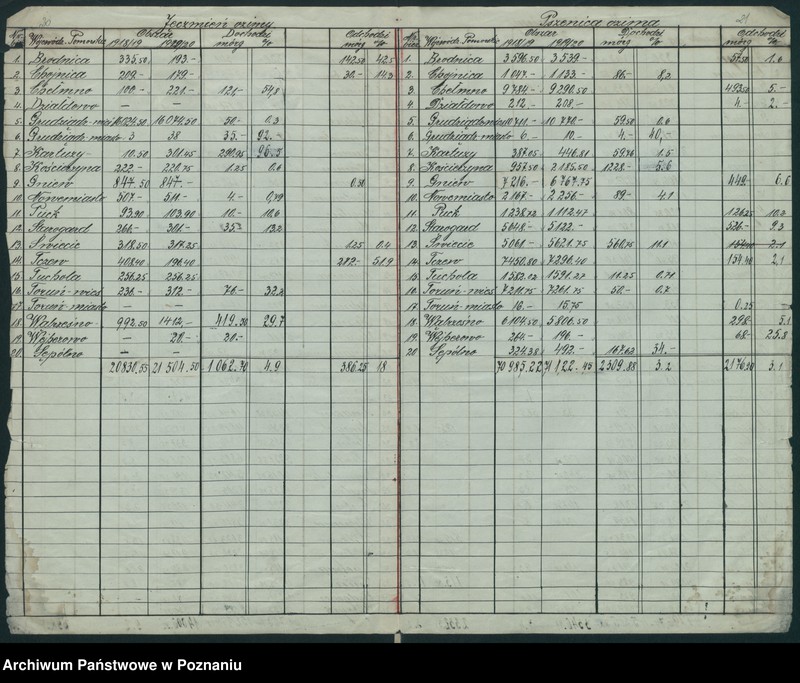 20 Jęczmień ozimy
Obszar Dochodzi Odchodzi
Nr. Wojewódz. Pomorskie 1918/19 1919/20 mórg % mórg %
1. Brodnica 335,50 193.- 142,50 42,5
2. Chojnica 209.- 179.- 30.- 14,3
3. Chełmno 100.- 221.- 121.- 54,8
4. Działdowo — —
5. Grudziądz 16 074,50 50.- 0,3
6. Grudziądz-miasto 3 38 35.- 92.-
7. Kartuzy 10.50 301.45 290.95 96.5
8. Kościerzyna 222.- 220.75 1.25 0.6
9. Gniew 847.50 847.- 0.50
10. Nowemiasto 507.- 511.- 4.- 0,79
11. Puck 93.90 103.90 10.- 10,6
12. Starogard 266.- 301.- 35.- 13,2
13. Świecie 318.50 317.25 1.25 0.4
14. Tczew 408.40 196.40 212.- 51.9
15. Tuchola 256.25 256.25
16. Toruń-wieś 236.- 312.- 76.- 32,2
17. Toruń-miasto — —
18. Wąbrzeźno 992.50 1412.- 419.50 29.7
19. Wejherowo — 20.- 20.-
20. Sępólno — —
20830.55 21 504.50 1 062.70 4.9 386.25 1.8
Pszenica ozima 21
Obszar Dochodzi Odchodzi
Nr. Wojewódz. Pomorskie 1918/19 1919/20 mórg % mórg %
1. Brodnica 3 596.50 3 539.- 57.50 1.6
2. Chojnica 1 047.- 1 133.- 86.- 8,2
3. Chełmno 9 784.- 9 290.50 493.50 5.-
4. Działdowo 212.- 208.- 4.- 2.-
5. Grudziądz 10 711.- 10 770.- 59.50 0.6
6. Grudziądz-miasto 6.- 10.- 4.- 40.-
7. Kartuzy 387.05 446.81 59.76 1.5
8. Kościerzyna 957.50 2 185.50 1228.- 5.6
9. Gniew 7 216.- 6 767.75 449.- 6.6
10. Nowemiasto 2 167.- 2 256.- 89.- 4.1
11. Puck 1 238.72 1 112.47 126.25 10.2
12. Starogard 5 648.- 5 122.- 526.- 9.3
13. Świecie 5 061.- 5 621.75 560.75 11.1 154.40 2.1
14. Tczew 7 450.80 7 296.40 154.40 2,1
15. Tuchola 1 582.02 1 591.27 11.25 0.71
16. Toruń-wieś 7 211.75 7 261.75 50.- 0.7
17. Toruń-miasto 16.- 15.75 0.25 —
18. Wąbrzeźno 6 104.50 5 806.50 298.- 5.1
19. Wejherowo 264.- 196.- 68.- 25.8
20 Sępólno 324.38 492.- 167.62 34.-
70 985.22 71 122.45 2 309.88 3.2 2176.90 3.1
Archiwum Państwowe w Poznaniu